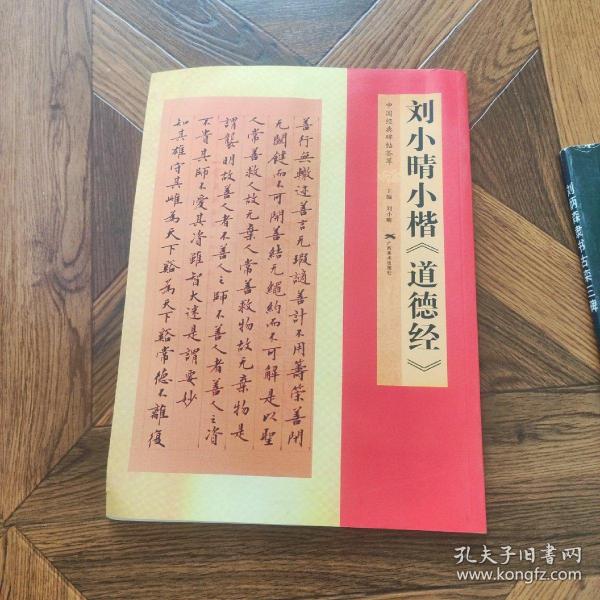 刘小晴小楷《道德经》
中国经典碑帖荟萃
主编 刘小晴
广西美术出版社
善行無轍迹善言元瑕謫善計不用籌策善閇
元關鍵而不可開善結元繩約而不可解是以聖
人常善救人故元棄人常善救物故元棄物是
謂襲明故善人者不善人之師不善人者善人之資
不貴其師不愛其資雖智大迷是謂要妙
知其雄守其雌為天下谿為天下谿常德不離復
刘炳森隶书古柴三碑
孔夫子旧书网
www.kongfz.com